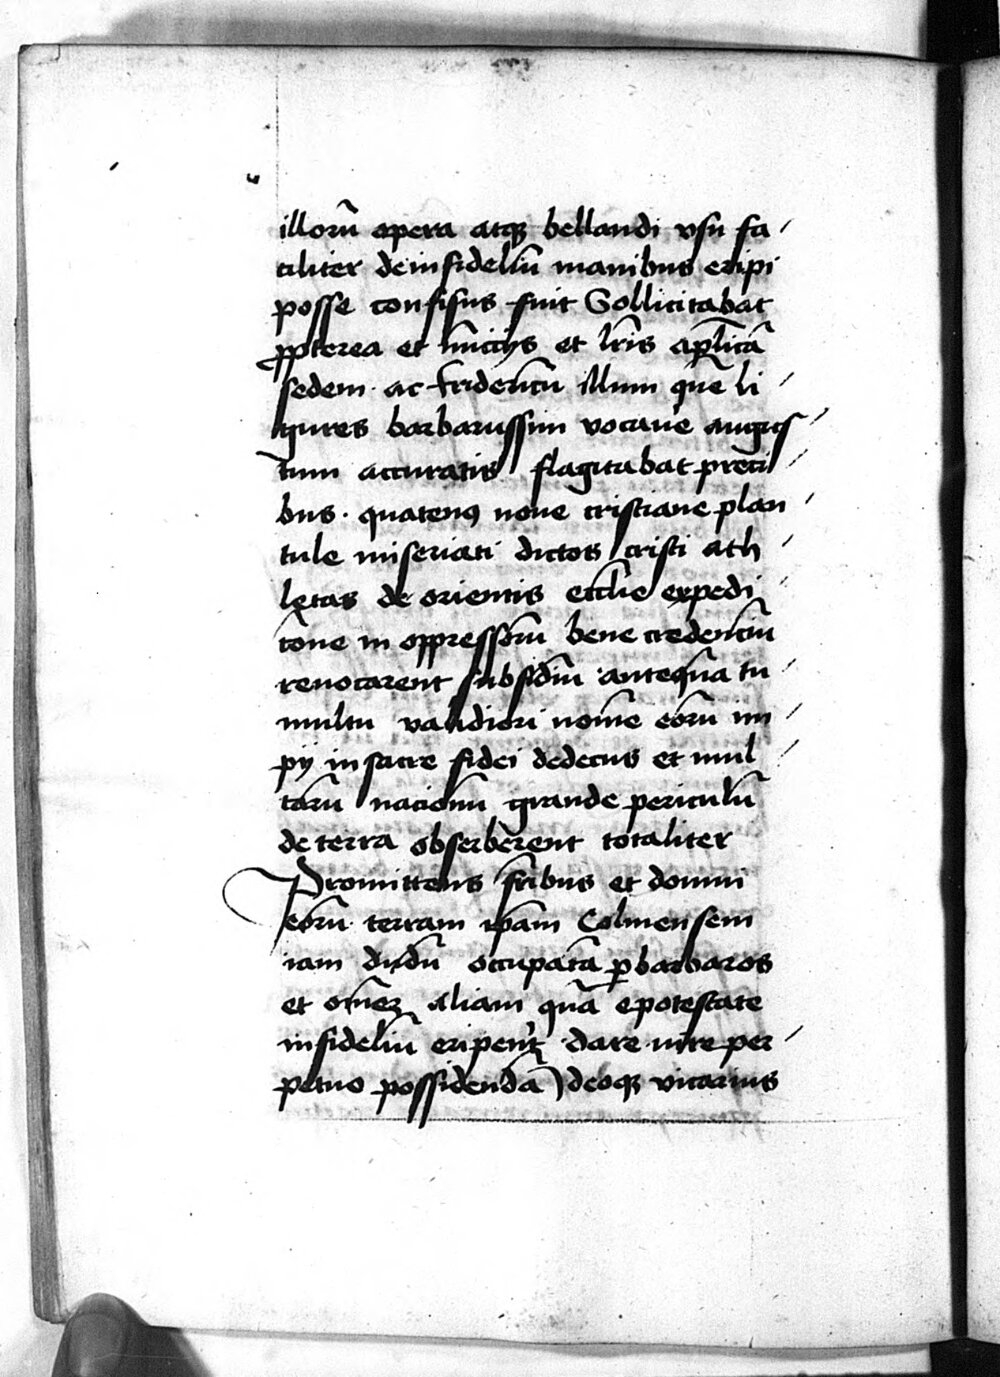 illorū opera atqꝫ bellandi vsu fa
ciliter de infideliū manibus eripi
posse confisus fuit Sollicitabat
ꝓpterea et nūccijs et lr̄is ap̄licā
sedem · ac fridericū illum quē li
gures barbarussim vocauē augus
tum accuratis flagitabat preci
bus · quatenꝰ noue cristiane plan
tule miseriati dictos cristi ath
letas de orientis ecclīe expedi
cōne in oppressoꝝū bene credenciū
reuocarent subsidiū anteqūa tu
multu validiori nomē eorū im
pij in sacre fidei dedecus et mul
tarū nacionū grande periculū
de terra obserberent totaliter
Promittens fribus et domui
eorū terram ip̄am Colmensem
iam dudū occupatā ꝑ barbaros
et om̄eꝫ aliam quā e potestate
infideliū eripent̄ dare iure per
petuo possidendā deoqꝫ vicarius